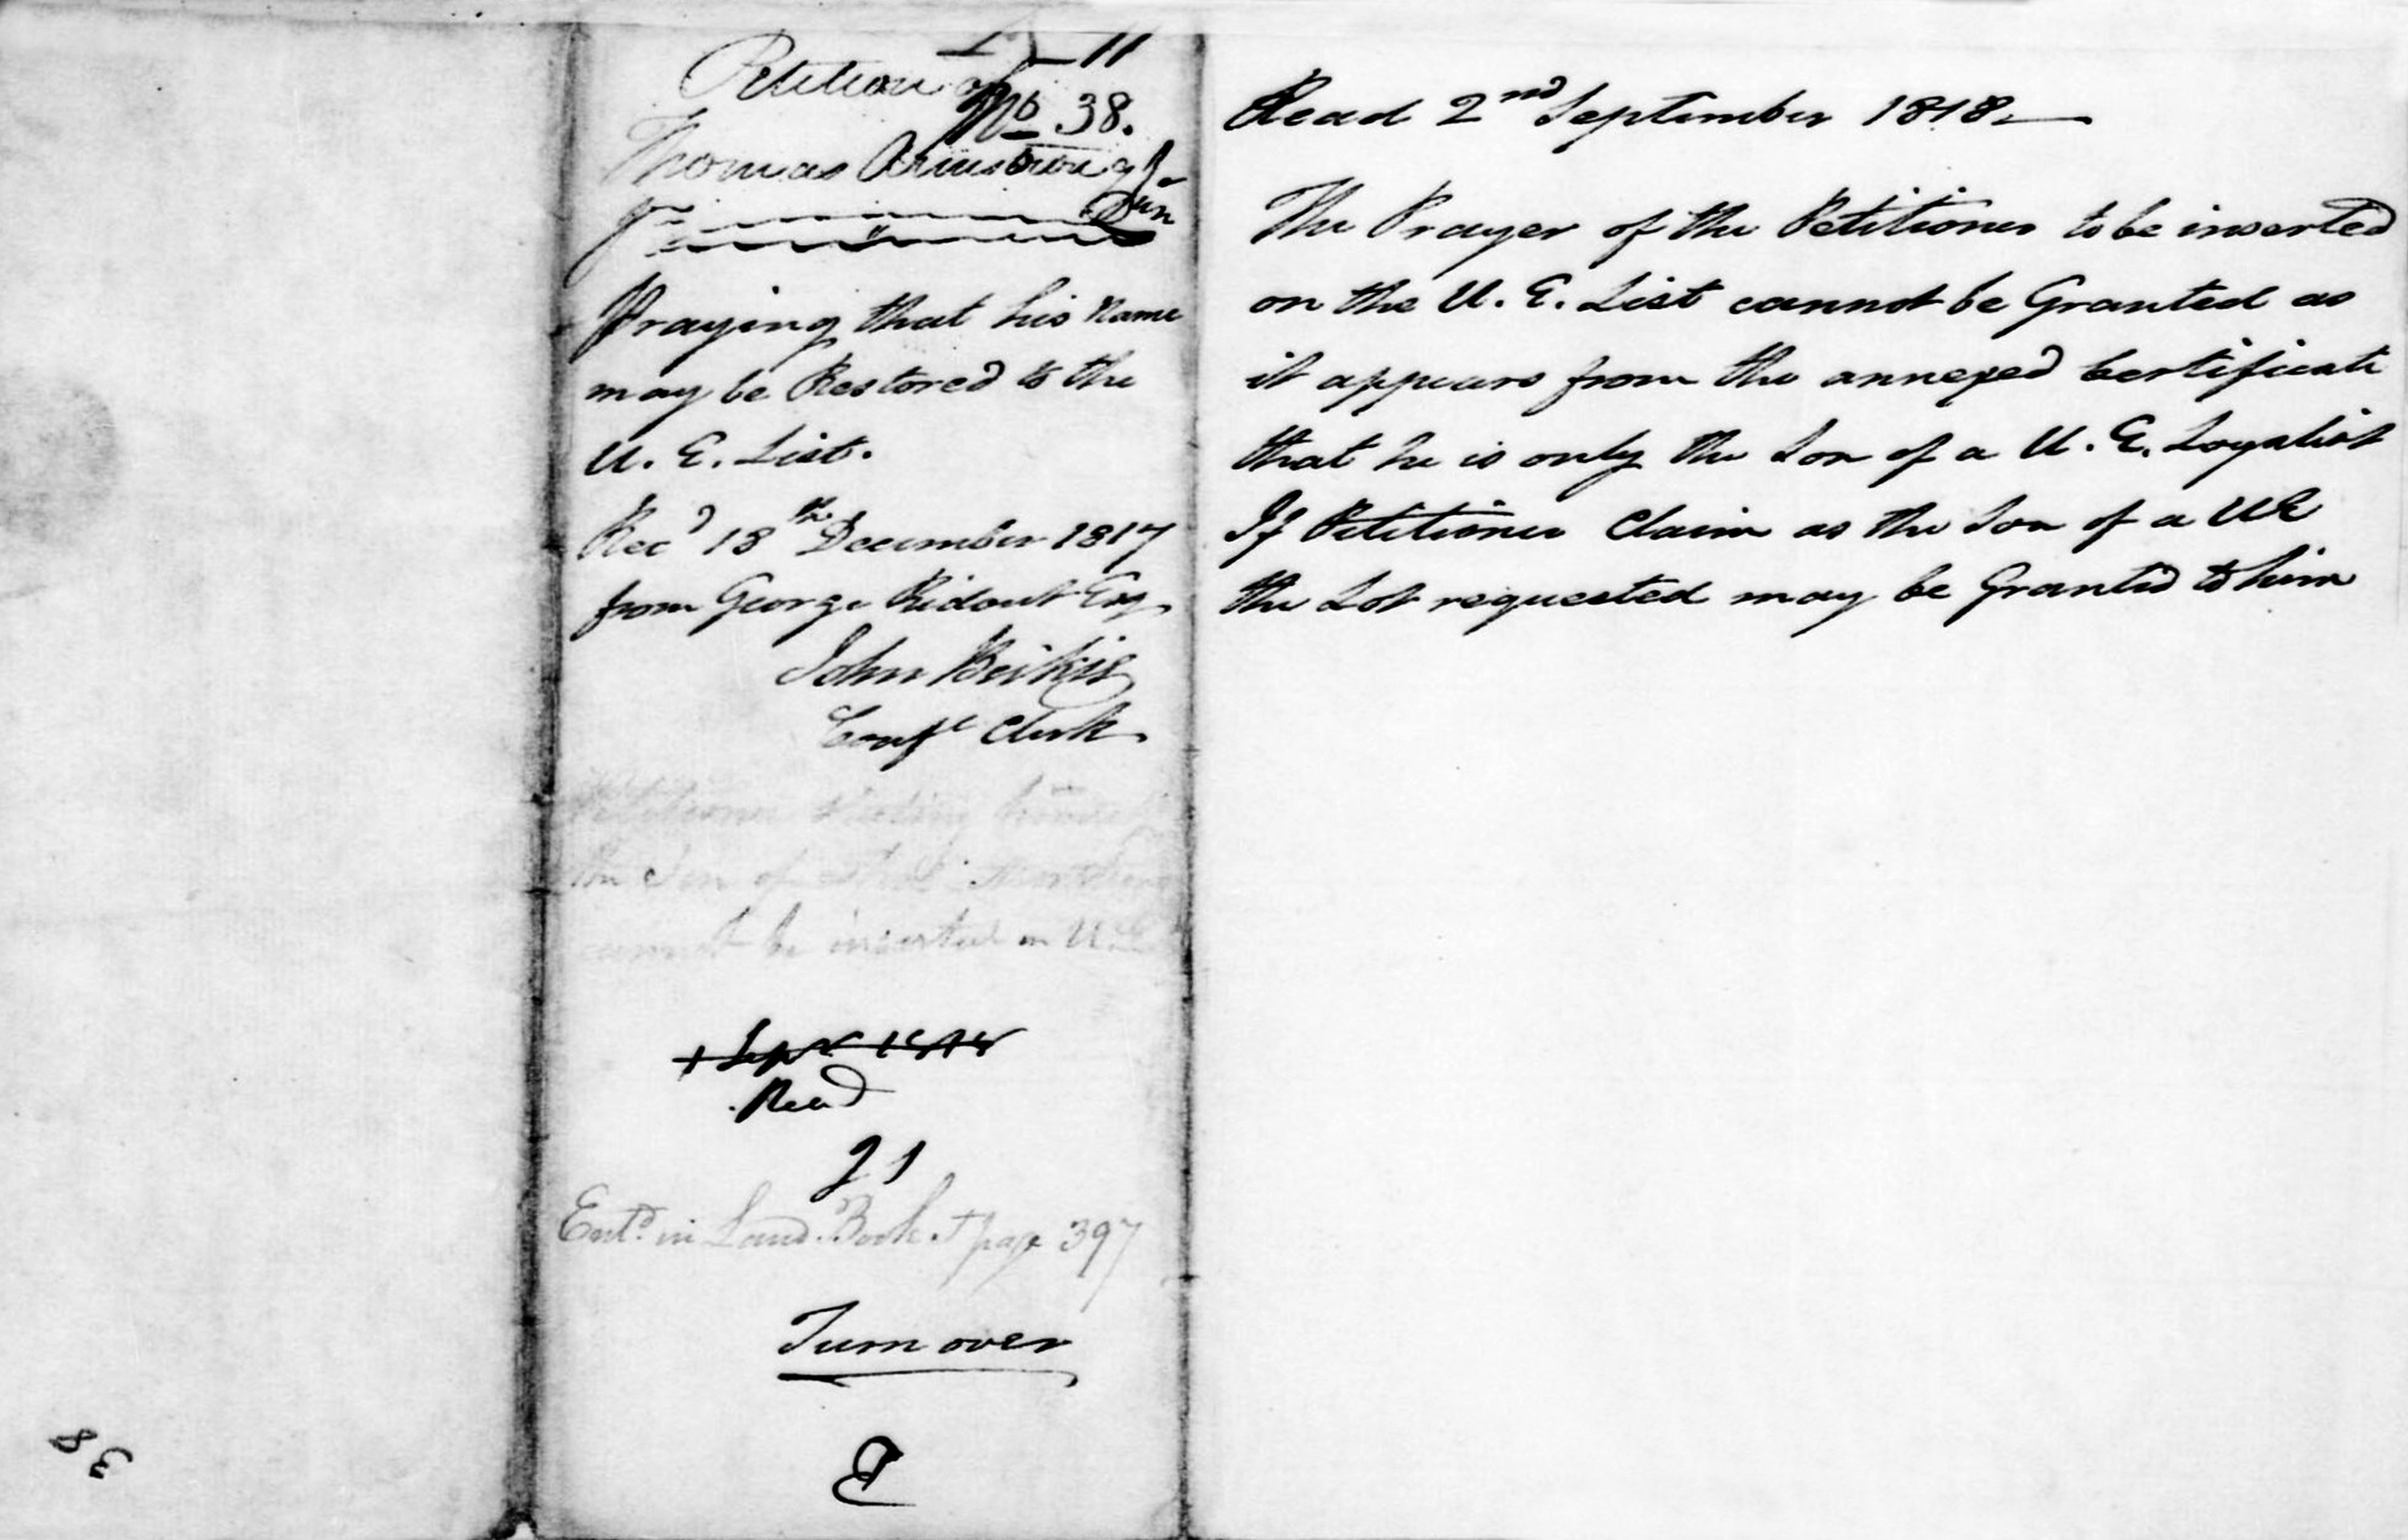 Petition of
No 38.
Thomas Armstrong Jr
Jun
Praying that his Name
may be Restored to the
U. E. List.
Recd 18th December 1817
from George Ridout Esq
John Beikie
Confl Clerk
Petitioner stating himself
the Son of
cannot be inserted on U.E
1 Sepr 1818
Read
21
Entd in Land Book J page 397
Turn over
38
Read 2nd September 1818
The Prayer of the Petitioner to be inserted
on the U. E. List cannot be Granted as
it appears from the annexed Certificate
that he is only the Son of a U. E. Loyalist
If Petitioner Claim as the Son of a UE
the Lot requested may be Granted to him